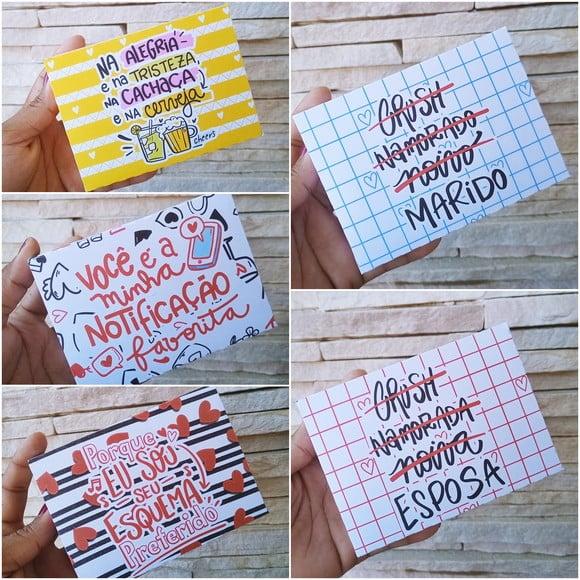 NA ALEGRIA
E NA TRISTEZA,
NA CACHAÇA
E NA CERVEJA
cheers
VOCÊ É A
minha
NOTIFICAÇÃO
favorita
Porque
EU SOU
SEU
ESQUEMA
Preferido
CRUSH
NAMORADO
noivo
MARIDO
CRUSH
NAMORADA
noiva
ESPOSA